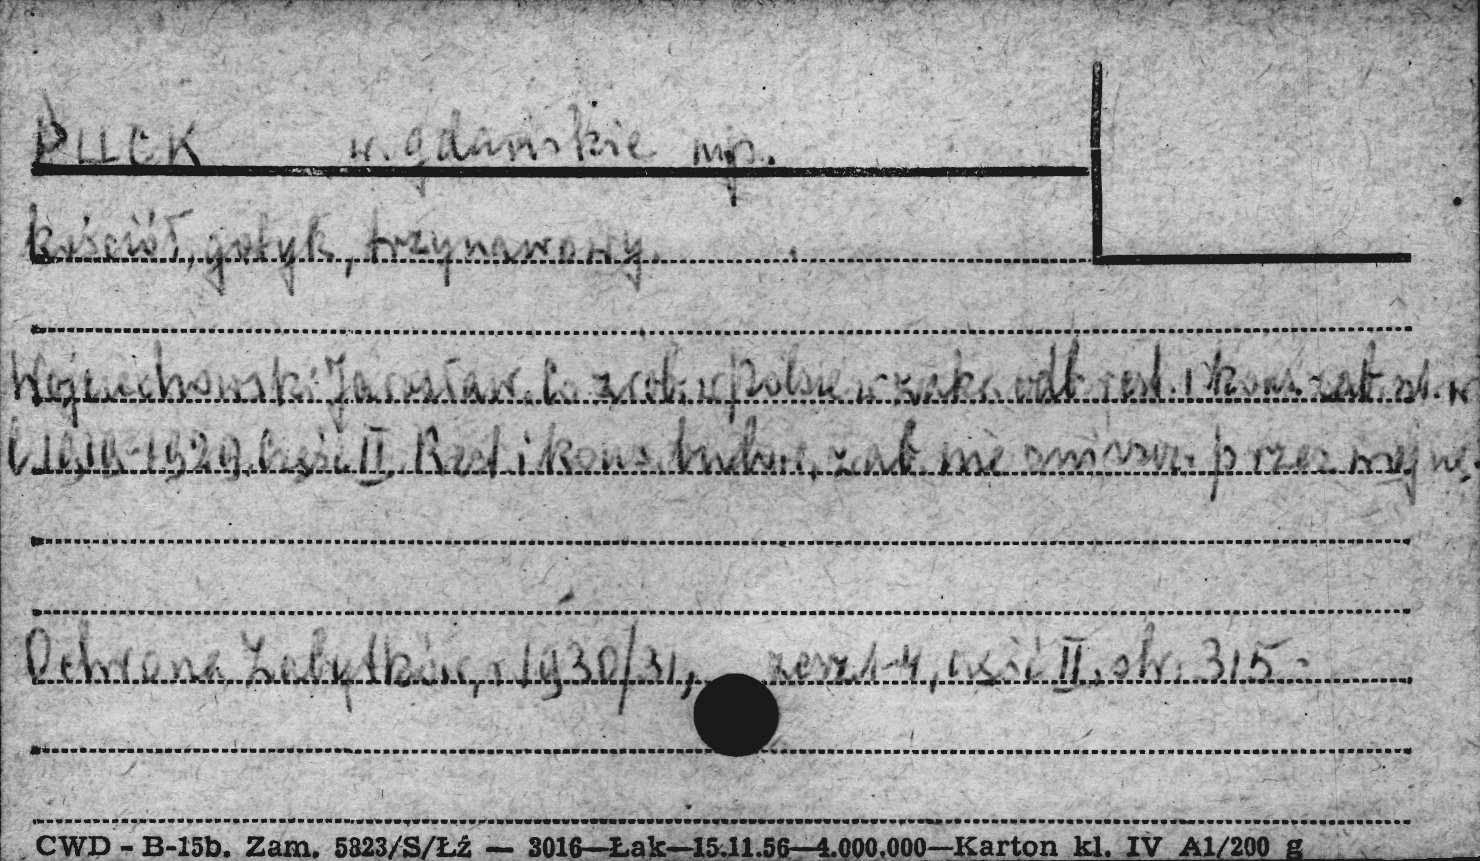 PUCK w. gdańskie mp.
kościół, gotyk, trzynawowy.
Wojciechowski Jarosław. Co zrob. w Polsce w zakr. odb. rest. i kons. zab. szt. w
l. 1919-1929. Część II. Rest. i kons. budow. zab. nie zniszcz. przez wojnę.
Ochrona Zabytków, r. 1930/31, zesz. 1-4, część II, str. 315.
CWD - B-15b. Zam. 5823/S/Łź — 3016—Łak—15.11.56—4.000.000—Karton kl. IV A1/200 g